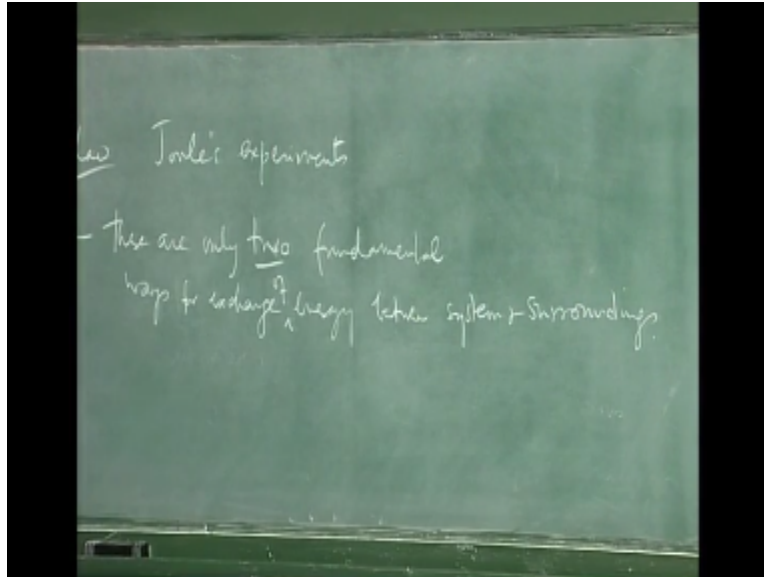 law Joule's experiments
- these are only two fundamental
ways for exchange of energy between system & surroundings.